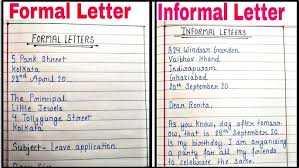 Formal Letter
FORMAL LETTERS
5 Park Street
Kolkata
28nd April 20...
The Principal
Little Jewels
4 Tollygunge Street
Kolkata
Subject - Leave application
Informal Letter
INFORMAL LETTERS
B24 Windsor Garden
Vaibhav Khand
Indirapuram
Ghaziabad
20th September 20..
Dear Renita,
As you know, day after tomorr-
ow, that is 28th September
is my birthday. I am organising
a party for all my friends
to celebrate the same.